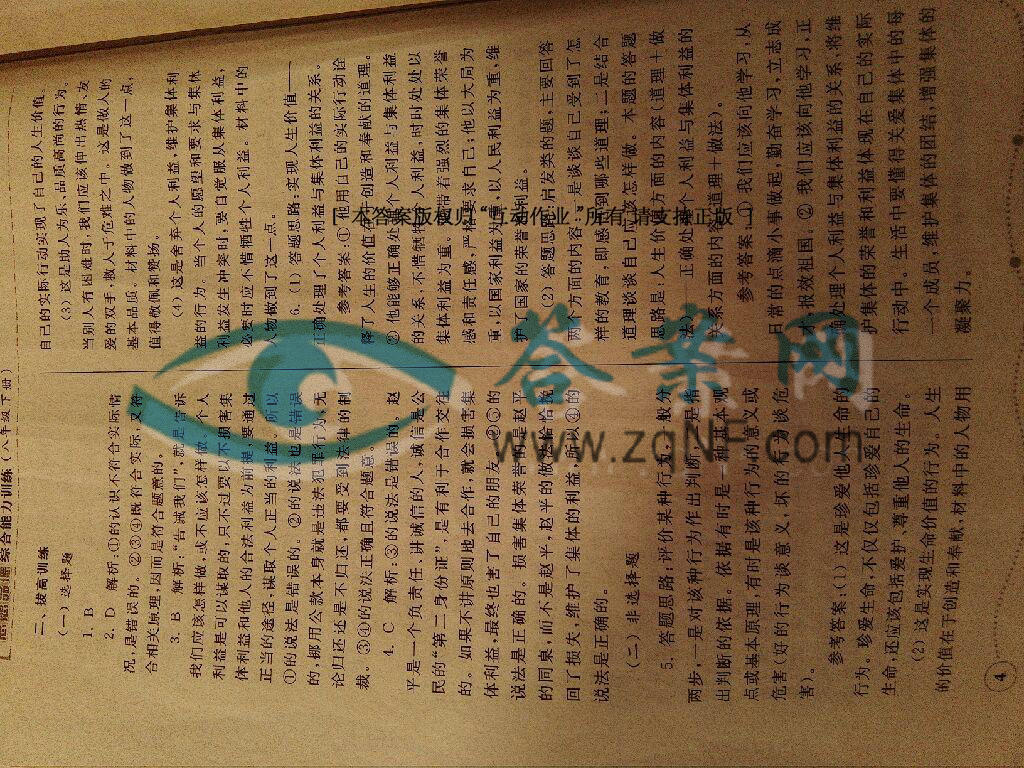 综合能力训练(八年级下册)
二、拔高训练
(一)选择题
1. B
2. D 解析:①的认识不符合实际情
况,是错误的。②③④既符合实际,又符
合相关原理,因而是符合题意的。
3. B 解析:“告诫我们”,就是告诉
我们应该怎样做或不应该怎样做。个人
利益是可以谋取的,只不过要以不损害集
体利益和他人的合法利益为前提,要通过
正当的途径,谋取个人正当的利益。所以
①的说法是错误的。②的说法也是错误
的,挪用公款本身就是违法犯罪行为,无
论归还还是不归还,都要受到法律的制
裁。③④的说法正确且符合题意。
4. C 解析:③的说法是错误的。赵
平是一个负责任、讲诚信的人,诚信是公
民的“第二身份证”,是有利于合作交往
的。如果不讲原则地去合作,就会损害集
体利益,最终也害了自己的朋友。②③的
说法是正确的。损害集体荣誉的是赵平
的同桌,而不是赵平,赵平的做法恰恰挽
回了损失,维护了集体的利益,所以④的
说法是正确的。
(二)非选择题
5. 答题思路:评价某种行为,一般分
两步,一是对该种行为作出判断,二是指
出判断的依据。依据有时是一种基本观
点或基本原理,有时是该种行为的意义或
危害(好的行为谈意义,坏的行为谈危
害)。
参考答案:(1)这是珍爱他人生命的
行为。珍爱生命,不仅仅包括珍爱自己的
生命,还应该包括爱护、尊重他人的生命。
(2)这是实现生命价值的行为。人生
的价值在于创造和奉献,材料中的人物用
4
自己的实际行动实现了自己的人生价值。
(3)这是助人为乐、品质高尚的行为。
当别人有困难时,我们应该伸出热情、友
爱的双手,救人于危难之中。这是做人的
基本品质。材料中的人物做到了这一点,
值得敬佩和赞扬。
(4)这是舍弃个人利益,维护集体利
益的行为。当个人的愿望和要求与集体
利益发生冲突时,要自觉服从集体利益,
必要时应不惜牺牲个人利益。材料中的
人物做到了这一点。
6. (1)答题思路:实现人生价值——
正确处理了个人利益与集体利益的关系。
参考答案:①他用自己的实际行动诠
释了人生的价值在于创造和奉献的道理。
②他能够正确处理个人利益与集体利益
的关系,不惜牺牲个人利益,时时处处以
集体利益为重。③带着强烈的集体荣誉
感和责任感,严格要求自己;他以大局为
重,以国家利益为重,以人民利益为重,维
护了国家的荣誉和利益。
(2)答题思路:启发类的题,主要回答
两个方面的内容:一是谈谈自己受到了怎
样的教育,即感悟到哪些道理;二是结合
道理谈谈自己应该怎样做。本题的答题
思路是:人生价值方面的内容(道理+做
法)——正确处理个人利益与集体利益的
关系方面的内容(道理+做法)。
参考答案:①我们应该向他学习,从
日常的点滴小事做起,勤奋学习,立志成
才,报效祖国。②我们应该向他学习,正
确处理个人利益与集体利益的关系,将维
护集体的荣誉和利益体现在自己的实际
行动中。生活中要懂得关爱集体中的每
一个成员,维护集体的团结,增强集体的
凝聚力。
[ 本答案版权归“互动作业”所有,请支持正版 ]
答案网
www.zqNF.com